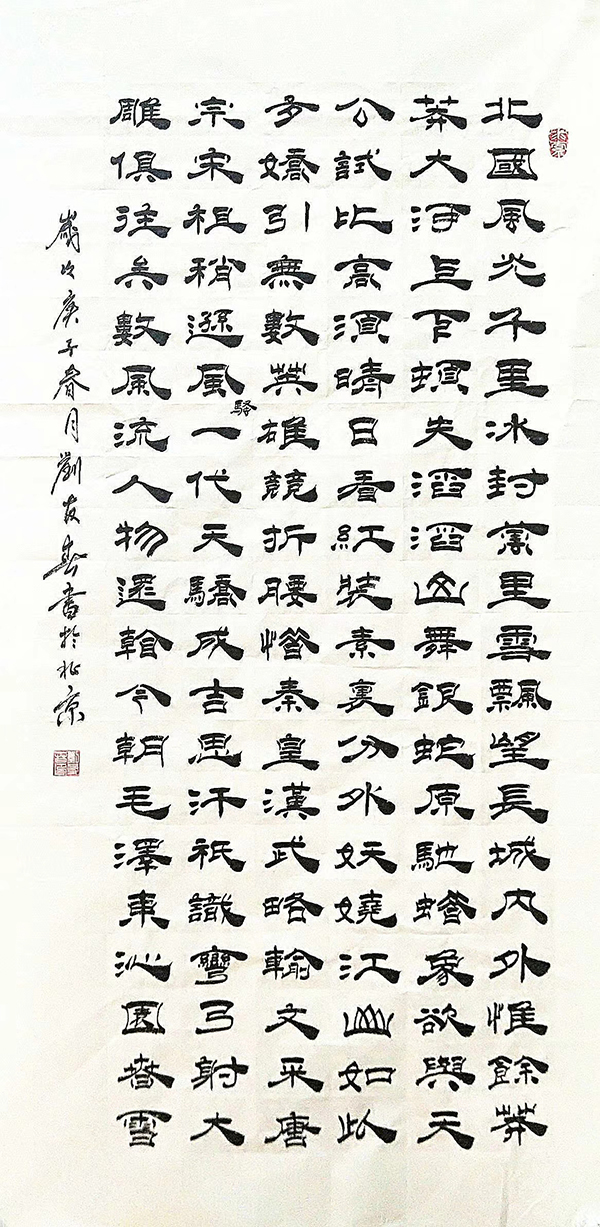 北國風光千里冰封萬里雪飄望長城內外惟餘莽
莽大河上下頓失滔滔山舞銀蛇原馳蠟象欲與天
公試比高須晴日看紅裝素裹分外妖嬈江山如此
多嬌引無數英雄競折腰惜秦皇漢武略輸文采唐
宗宋祖稍遜風騷一代天驕成吉思汗祇識彎弓射大
雕俱往矣數風流人物還看今朝毛澤東沁園春雪
歲次庚子春月劉友春書於北京